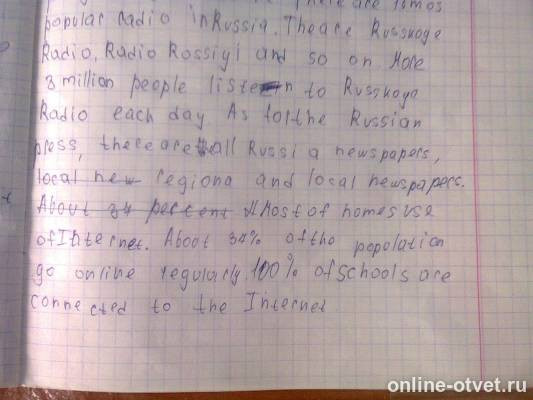 There are famos
popular radio in Russia. The are Russkoge
Radio, Radio Rossiyi and so on More
3 million people listen to Russkoge
Radio each day As for the Russian
press, there are all Russia newspapers,
local new regiona and local newspapers.
About 34 percent Most of homes use
of Internet. About 34% of the population
go online regularly 100% of schools are
connected to the Internet.
online-otvet.ru